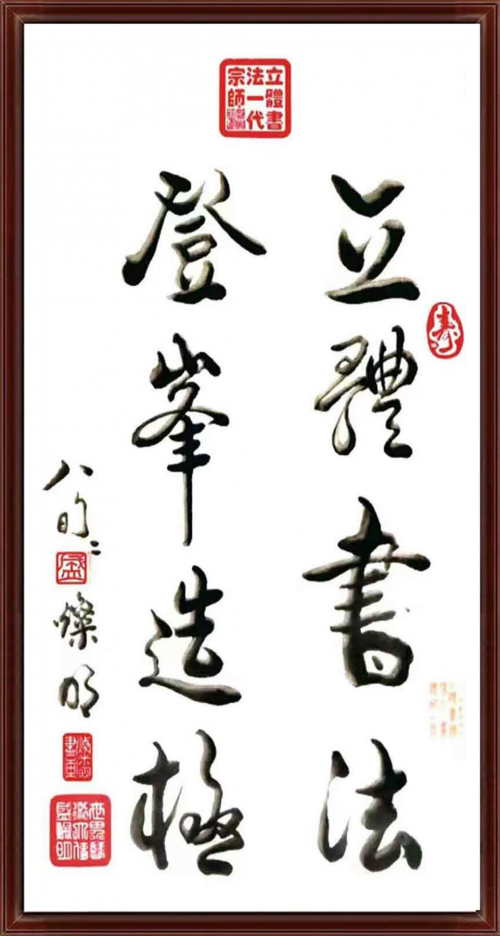 立體書
法一代
宗師
立體書法
寿
登峯造極
八旬二
盛
燦明